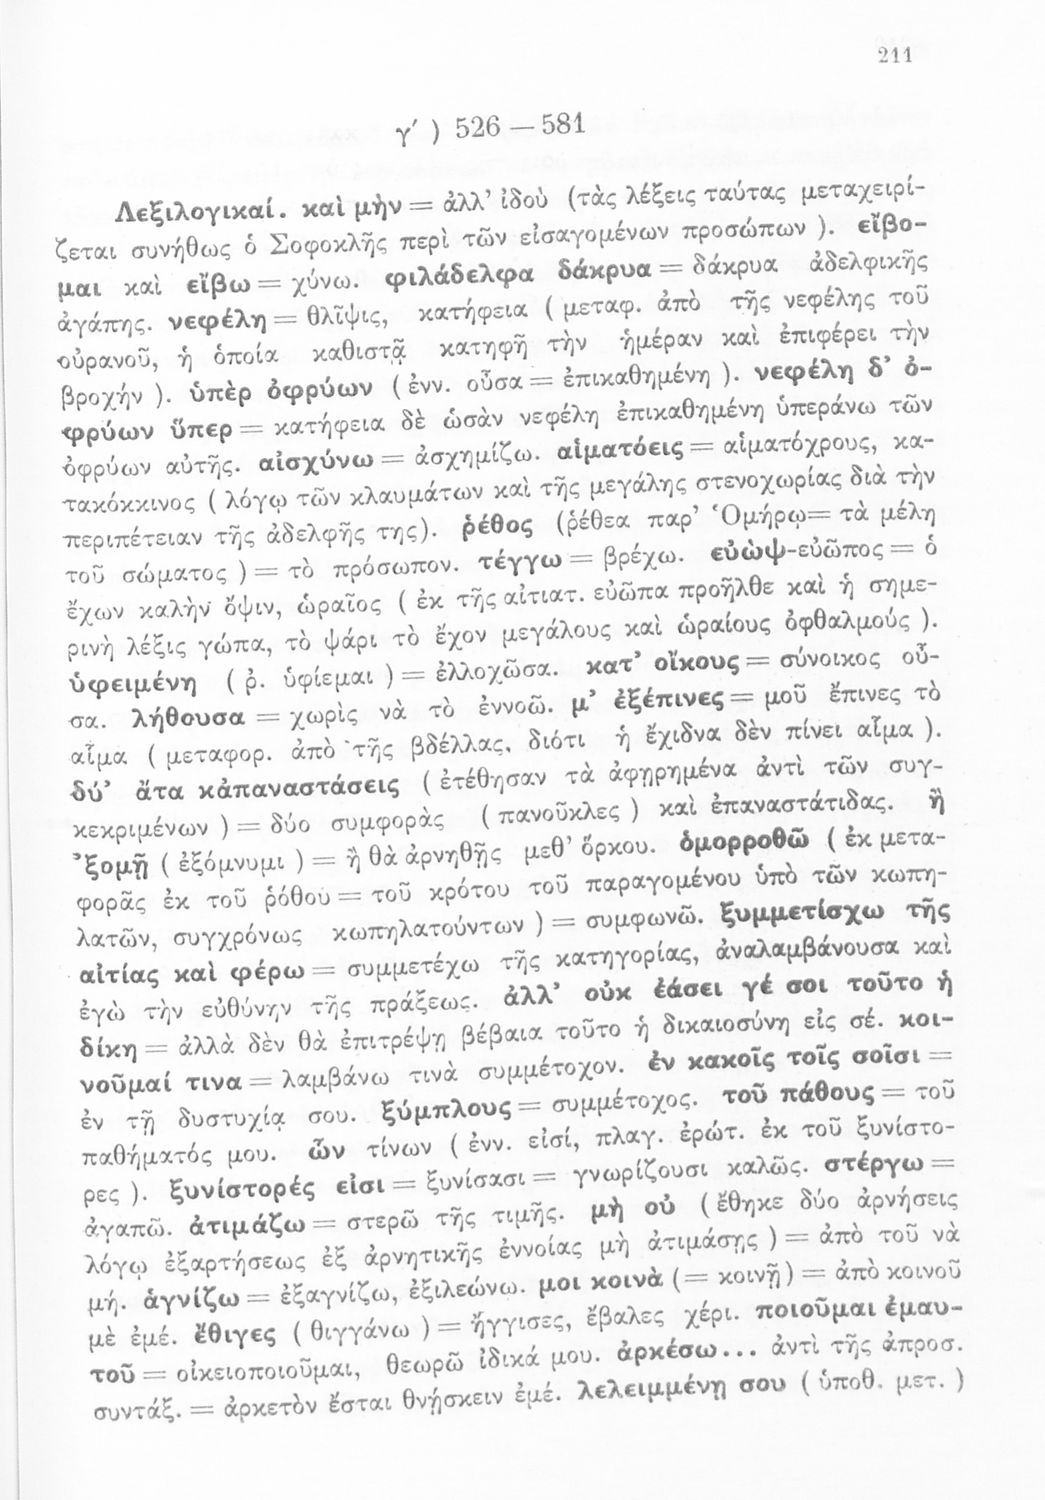 211
γ′ ) 526 — 581
Λεξιλογικαί. καὶ μὴν = ἀλλ' ἰδοὺ (τὰς λέξεις ταύτας μεταχειρί-
ζεται συνήθως ὁ Σοφοκλῆς περὶ τῶν εἰσαγομένων προσώπων ). εἴβο-
μαι καὶ εἴβω = χύνω. φιλάδελφα δάκρυα = δάκρυα ἀδελφικῆς
ἀγάπης. νεφέλη = θλῖψις, κατήφεια ( μεταφ. ἀπὸ τῆς νεφέλης τοῦ
οὐρανοῦ, ἡ ὁποία καθιστᾷ κατηφῆ τὴν ἡμέραν καὶ ἐπιφέρει τὴν
βροχήν ). ὑπὲρ ὀφρύων ( ἐνν. οὖσα = ἐπικαθημένη ). νεφέλη δ' ὀ-
φρύων ὕπερ = κατήφεια δὲ ὡσὰν νεφέλη ἐπικαθημένη ὑπεράνω τῶν
ὀφρύων αὐτῆς. αἰσχύνω = ἀσχημίζω. αἱματόεις = αἱματόχρους, κα-
τακόκκινος ( λόγῳ τῶν κλαυμάτων καὶ τῆς μεγάλης στενοχωρίας διὰ τὴν
περιπέτειαν τῆς ἀδελφῆς της). ῥέθος (ῥέθεα παρ' Ὁμήρῳ= τὰ μέλη
τοῦ σώματος ) = τὸ πρόσωπον. τέγγω = βρέχω. εὐὼψ-εὐῶπος = ὁ
ἔχων καλὴν ὄψιν, ὡραῖος ( ἐκ τῆς αἰτιατ. εὐῶπα προῆλθε καὶ ἡ σημε-
ρινὴ λέξις γώπα, τὸ ψάρι τὸ ἔχον μεγάλους καὶ ὡραίους ὀφθαλμούς ).
ὑφειμένη ( ῥ. ὑφίεμαι ) = ἐλλοχῶσα. κατ' οἴκους = σύνοικος οὖ-
σα. λήθουσα = χωρὶς νὰ τὸ ἐννοῶ. μ' ἐξέπινες = μοῦ ἔπινες τὸ
αἷμα ( μεταφορ. ἀπὸ τῆς βδέλλας, διότι ἡ ἔχιδνα δὲν πίνει αἷμα ).
δύ' ἄτα κἀπαναστάσεις ( ἐτέθησαν τὰ ἀφῃρημένα ἀντὶ τῶν συγ-
κεκριμένων ) = δύο συμφορὰς ( πανοῦκλες ) καὶ ἐπαναστάτιδας. ἢ
'ξομῇ ( ἐξόμνυμι ) = ἢ θὰ ἀρνηθῇς μεθ' ὅρκου. ὁμορροθῶ ( ἐκ μετα-
φορᾶς ἐκ τοῦ ῥόθου = τοῦ κρότου τοῦ παραγομένου ὑπὸ τῶν κωπη-
λατῶν, συγχρόνως κωπηλατούντων ) = συμφωνῶ. ξυμμετίσχω τῆς
αἰτίας καὶ φέρω = συμμετέχω τῆς κατηγορίας, ἀναλαμβάνουσα καὶ
ἐγὼ τὴν εὐθύνην τῆς πράξεως. ἀλλ' οὐκ ἐάσει γέ σοι τοῦτο ἡ
δίκη = ἀλλὰ δὲν θὰ ἐπιτρέψῃ βέβαια τοῦτο ἡ δικαιοσύνη εἰς σέ. κοι-
νοῦμαί τινα = λαμβάνω τινὰ συμμέτοχον. ἐν κακοῖς τοῖς σοῖσι =
ἐν τῇ δυστυχίᾳ σου. ξύμπλους = συμμέτοχος. τοῦ πάθους = τοῦ
παθήματός μου. ὧν τίνων ( ἐνν. εἰσί, πλαγ. ἐρώτ. ἐκ τοῦ ξυνίστο-
ρες ). ξυνίστορές εἰσι = ξυνίσασι = γνωρίζουσι καλῶς. στέργω =
ἀγαπῶ. ἀτιμάζω = στερῶ τῆς τιμῆς. μὴ οὐ ( ἔθηκε δύο ἀρνήσεις
λόγῳ ἐξαρτήσεως ἐξ ἀρνητικῆς ἐννοίας μὴ ἀτιμάσῃς ) = ἀπὸ τοῦ νὰ
μή. ἁγνίζω = ἐξαγνίζω, ἐξιλεώνω. μοι κοινὰ (= κοινῇ) = ἀπὸ κοινοῦ
μὲ ἐμέ. ἔθιγες ( θιγγάνω ) = ἤγγισες, ἔβαλες χέρι. ποιοῦμαι ἐμαυ-
τοῦ = οἰκειοποιοῦμαι, θεωρῶ ἰδικά μου. ἀρκέσω... ἀντὶ τῆς ἀπροσ.
συντάξ. = ἀρκετὸν ἔσται θνῄσκειν ἐμέ. λελειμμένῃ σου ( ὑποθ. μετ. )